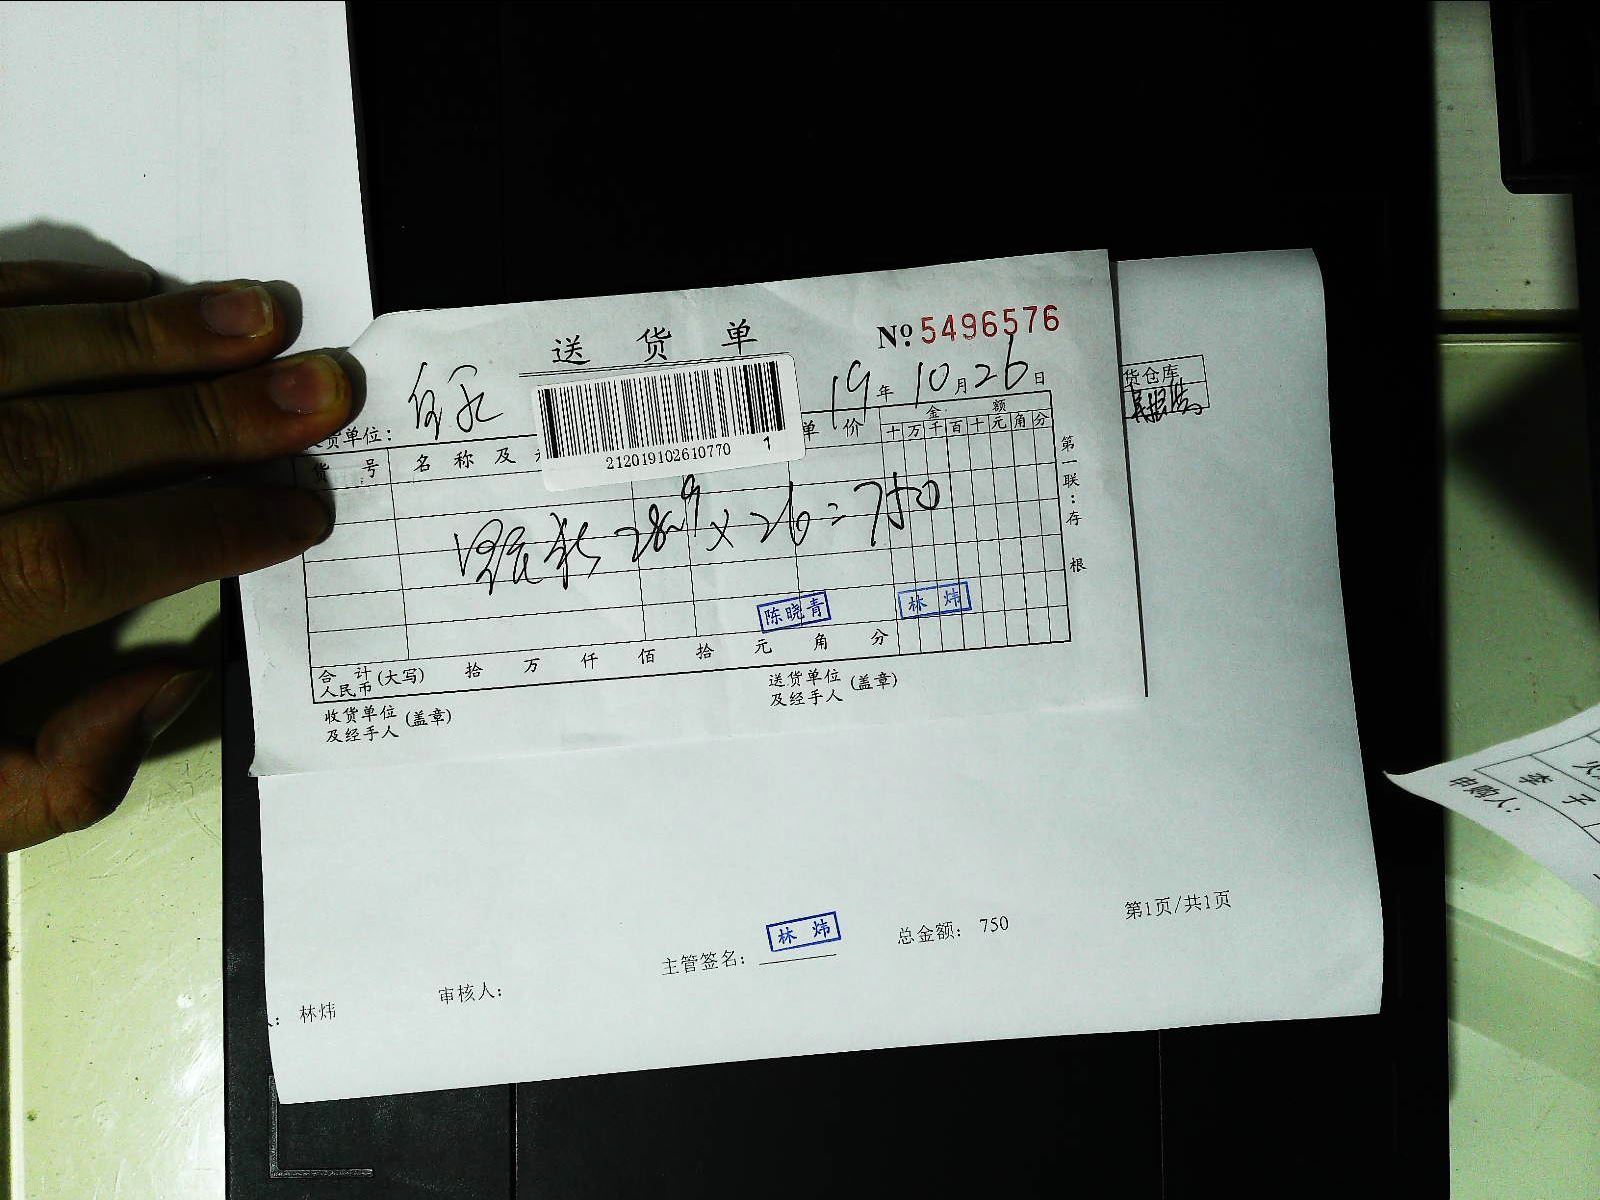 送货单
№ 5496576
19年10月26日
货单位：
212019102610770 1
货号
名称及
单价
金额
十万千百十元角分
第一联：存根
×26=750
陈晓青
林炜
合计
人民币
(大写)
拾万仟佰拾元角分
收货单位
及经手人
(盖章)
送货单位
及经手人
(盖章)
货仓库
主管签名：
林炜
总金额： 750
第1页/共1页
： 林炜
审核人：
李子
申购人：